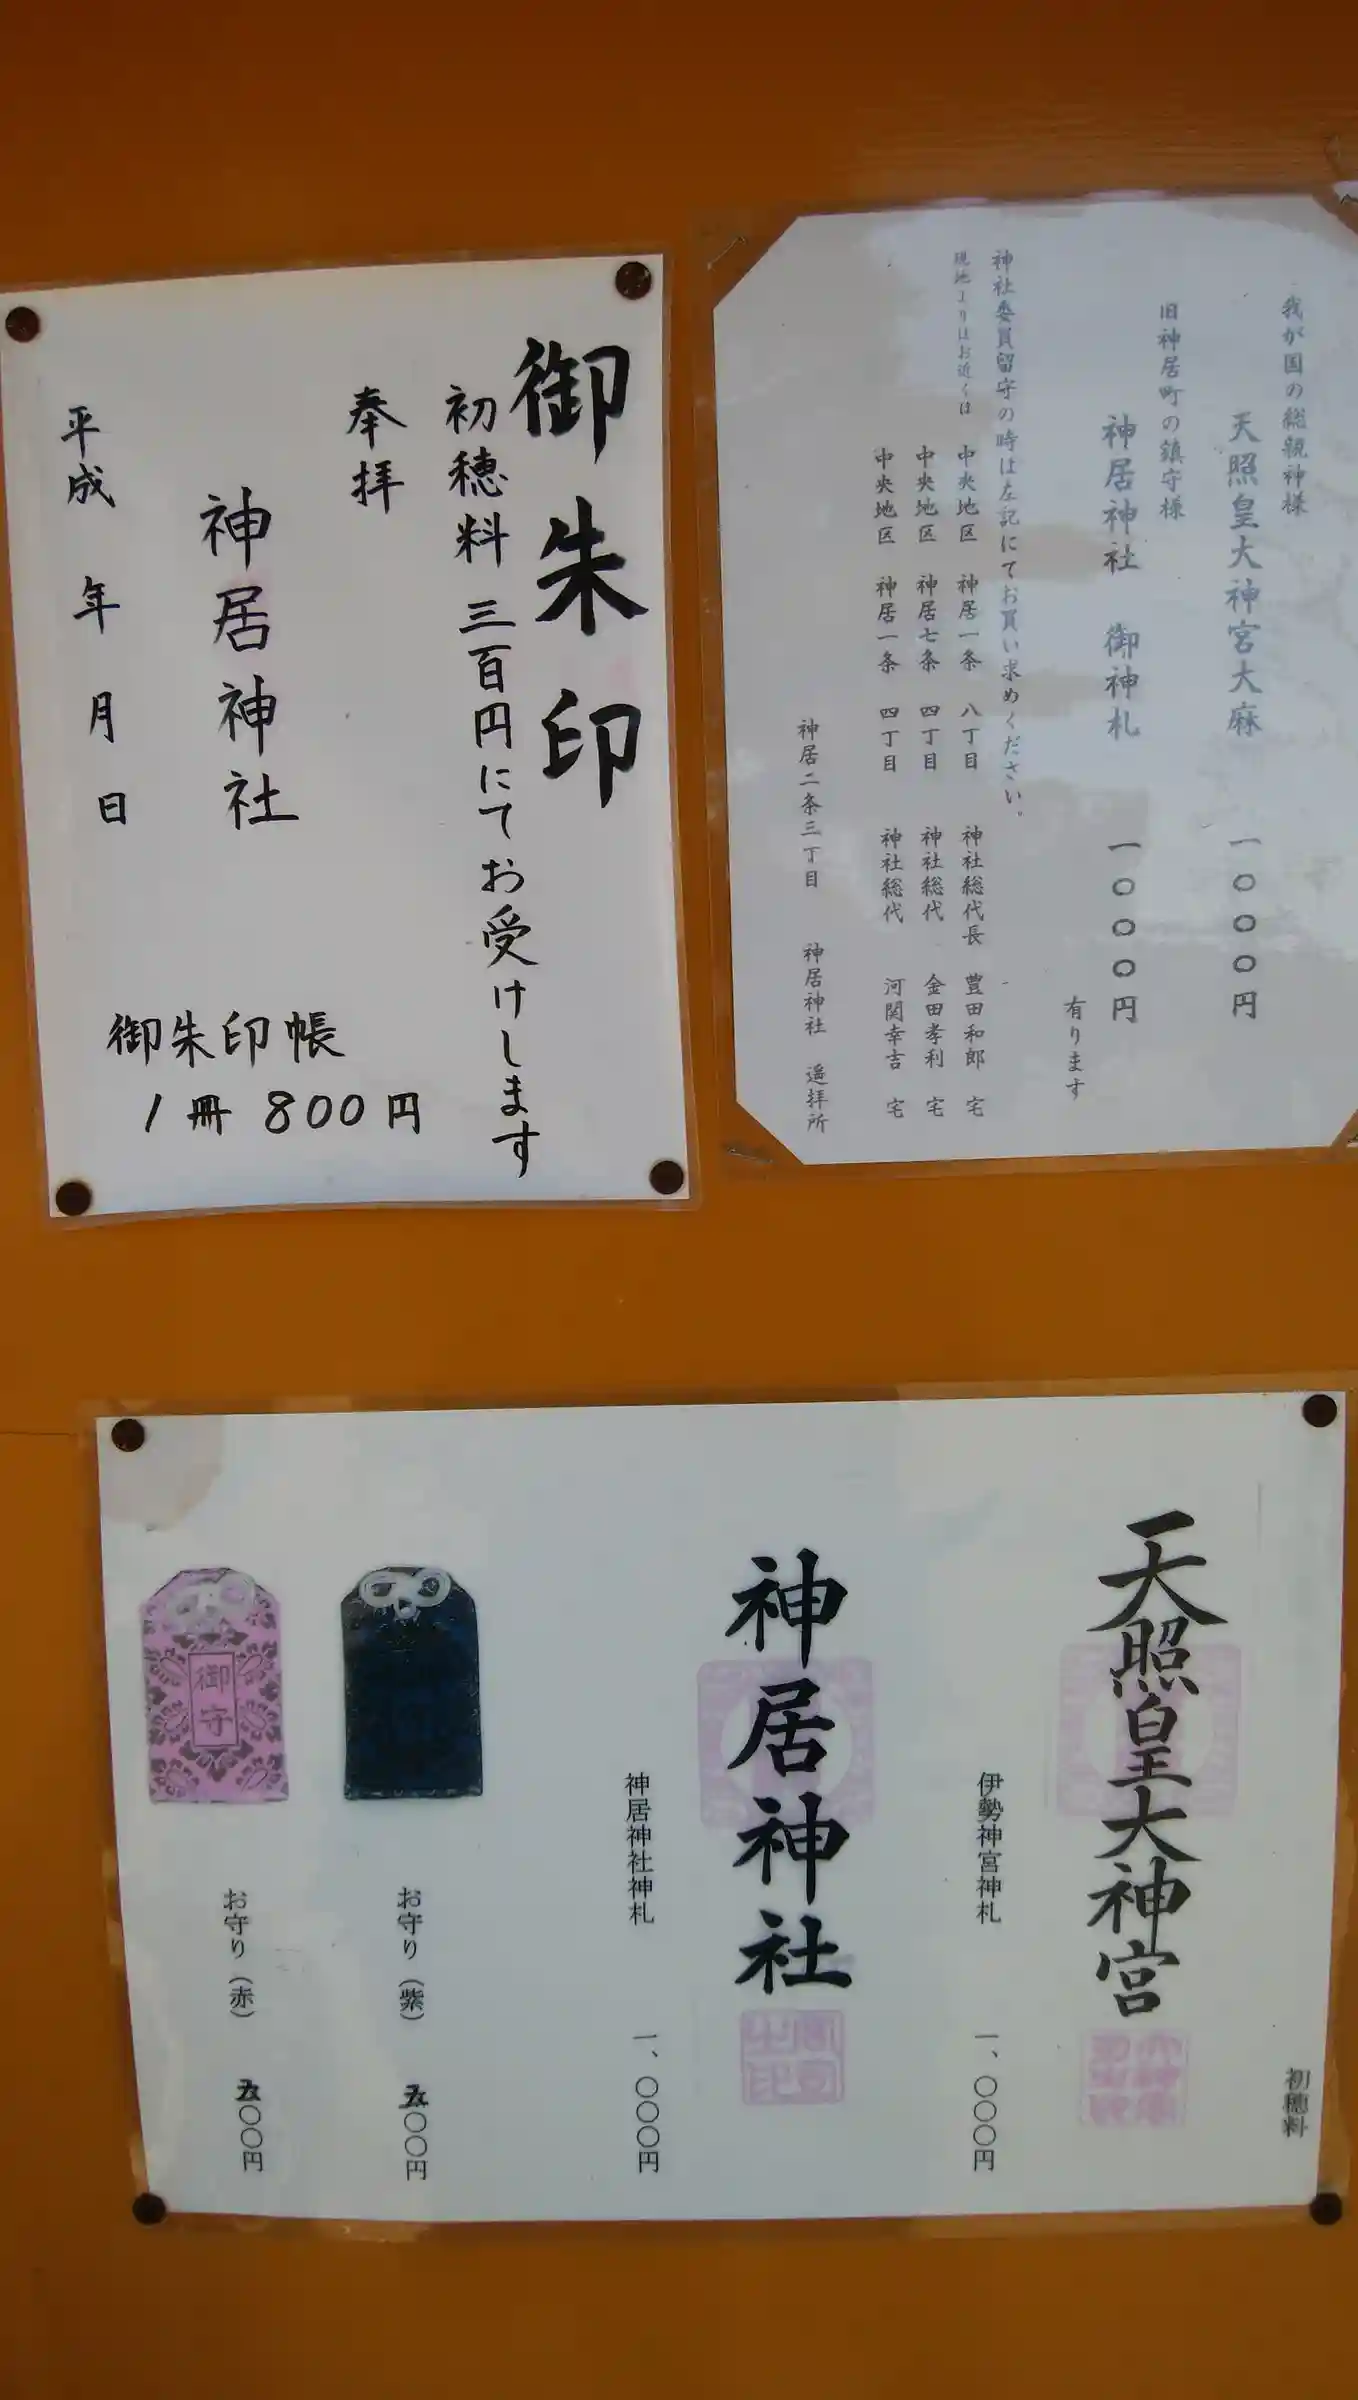 御朱印
初穂料 三百円にてお受けします
奉拝
神居神社
平成 年 月 日
御朱印帳
1冊 800円
我が国の総親神様
天照皇大神宮大麻 一〇〇〇円
旧神居町の鎮守様
神居神社 御神札 一〇〇〇円
有ります
神社委員留守の時は左記にてお買い求めください。
現地よりはお近くは 中央地区 神居一条 八丁目 神社総代長 豊田和郎 宅
中央地区 神居七条 四丁目 神社総代 金田孝利 宅
中央地区 神居一条 四丁目 神社総代 河関幸吉 宅
神居二条三丁目 神居神社 遥拝所
初穂料
天照皇大神宮
伊勢神宮神札 一、〇〇〇円
神居神社
神居神社神札 一、〇〇〇円
お守り(紫) 五〇〇円
御守
お守り(赤) 五〇〇円